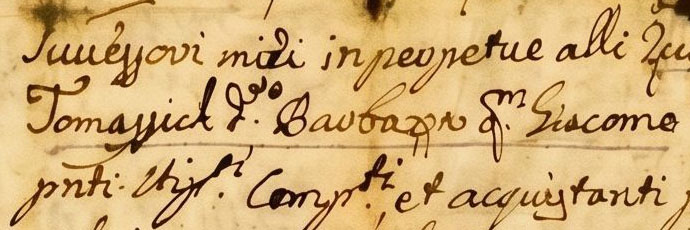 Successori miei in perpetue alli
Tomassich d.º Barbazza q.m Giacomo
pnti. Comp.ti, et acquistanti